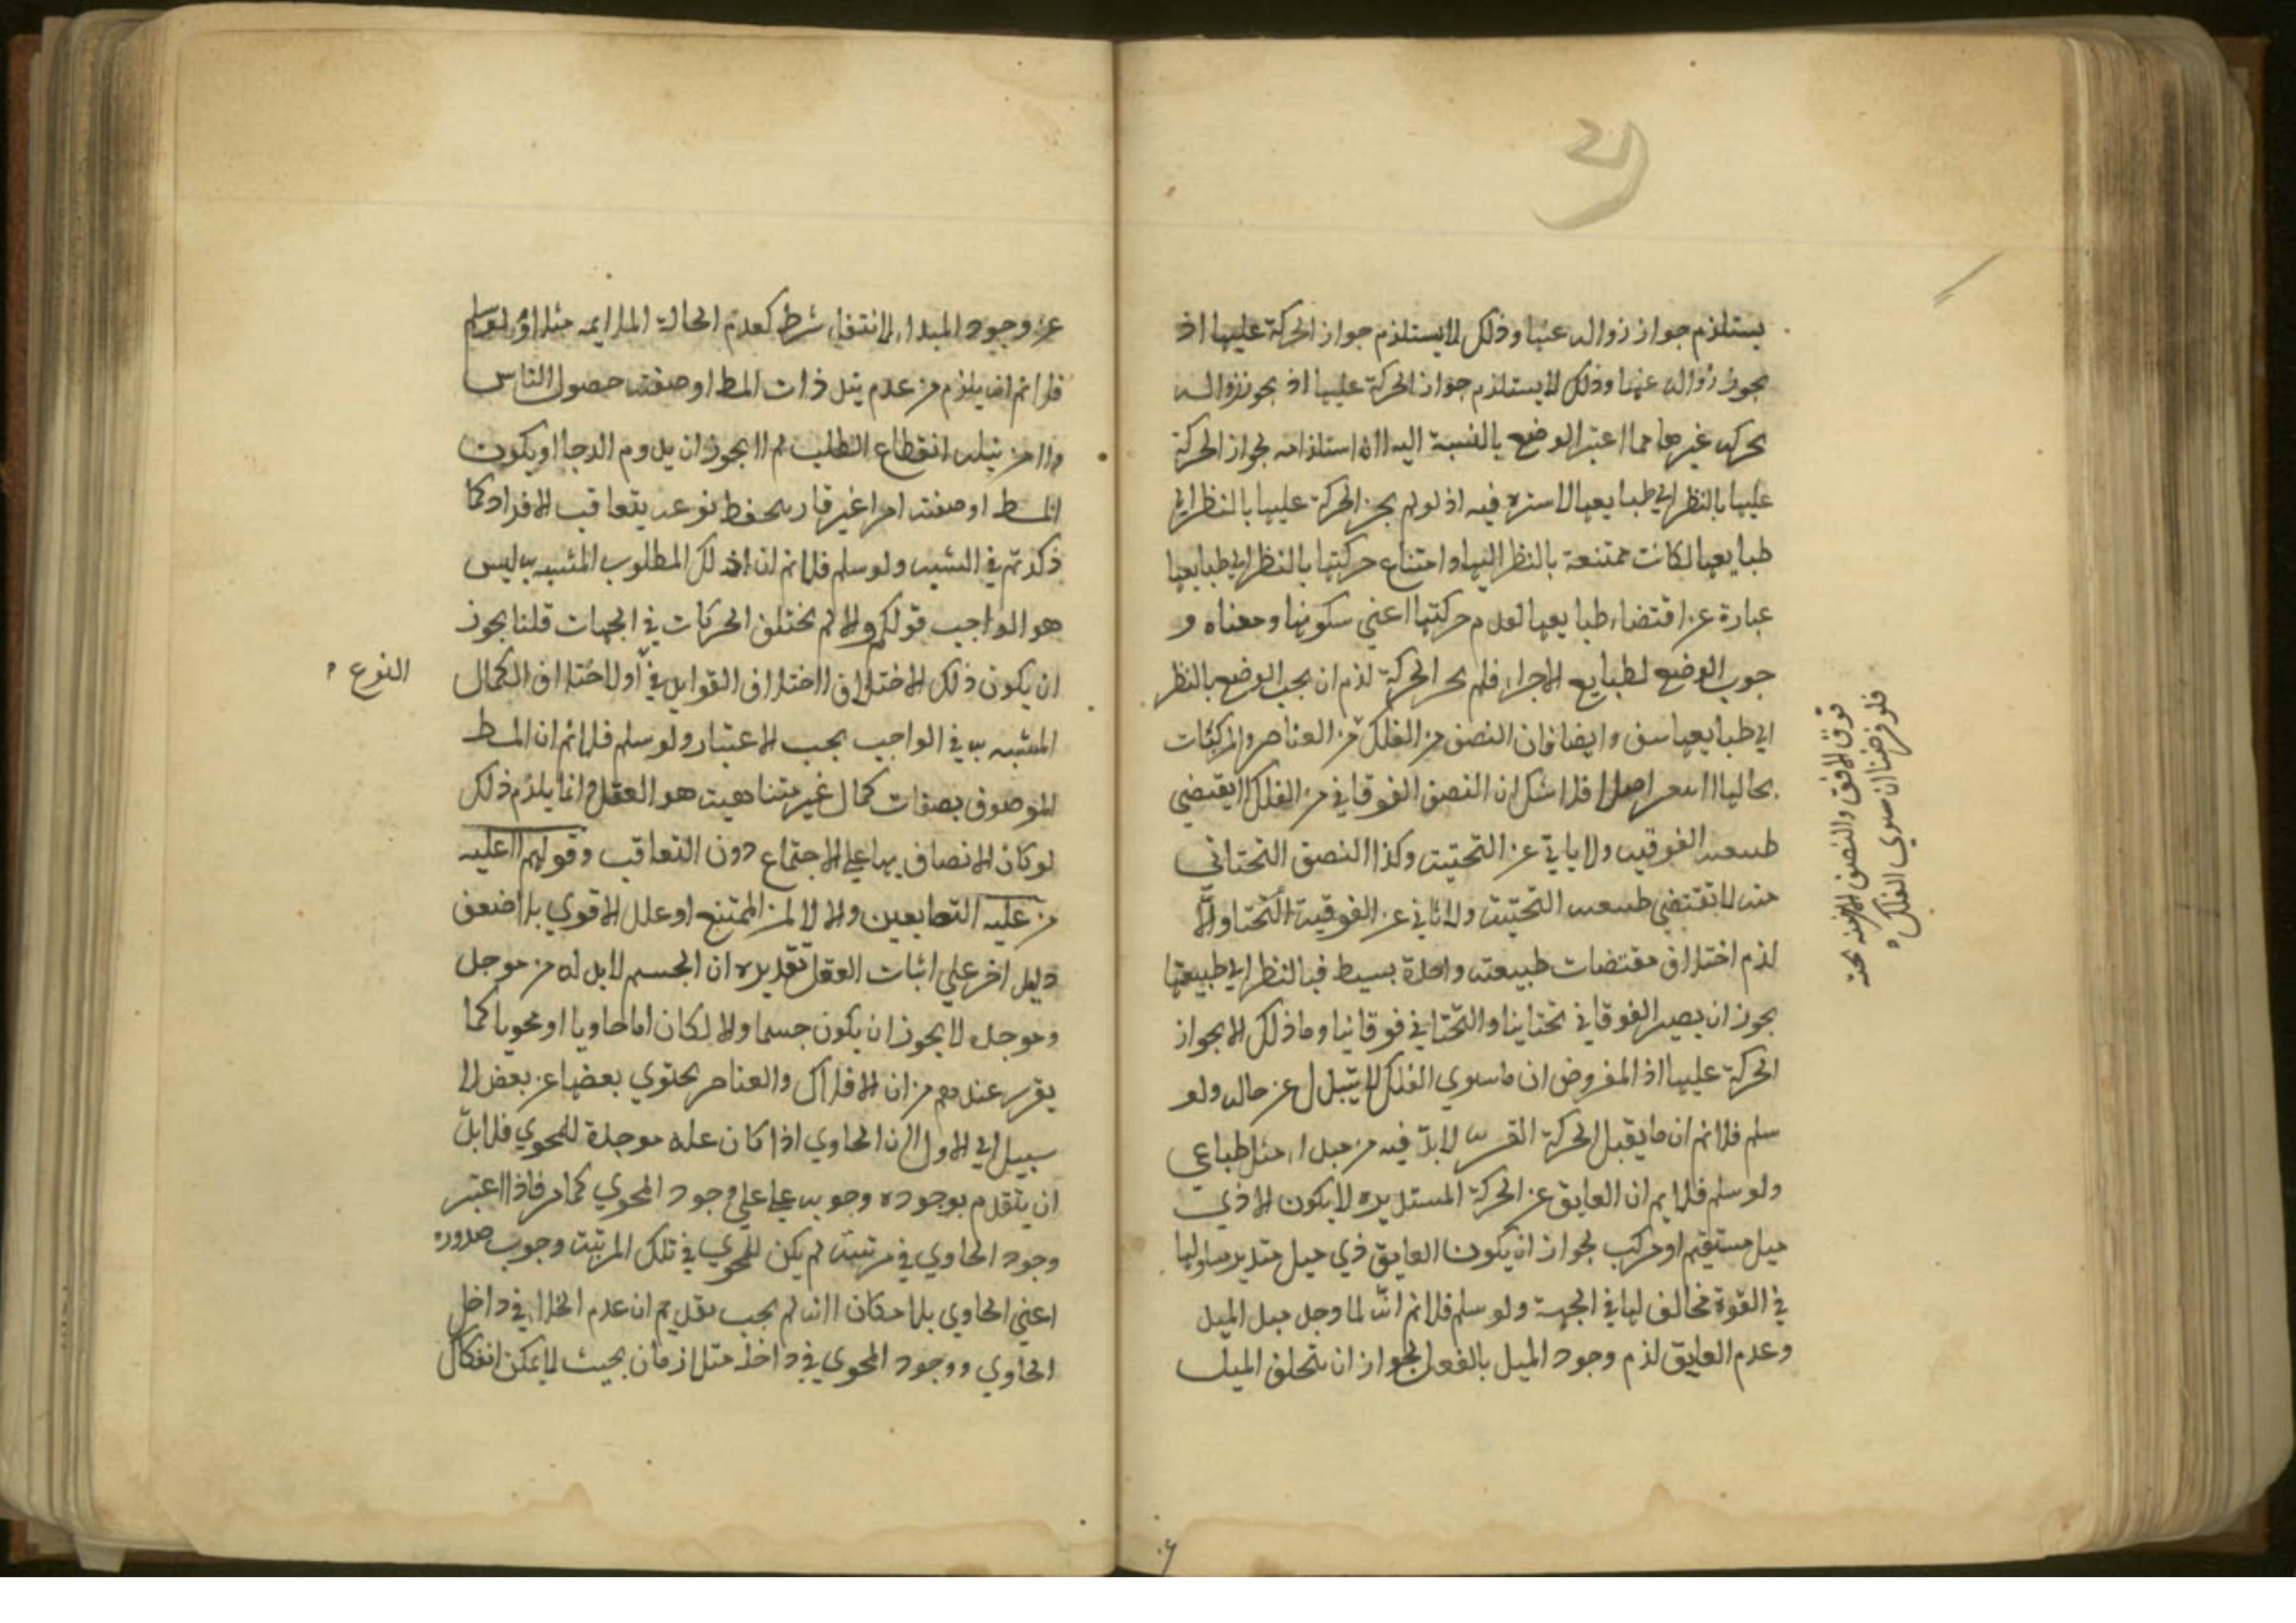 يستلزم جواز زواله عنها وذلك لا يستلزم جواز الحركة عليها اذ
يجوز زواله عنها وذلك لا يستلزم جواز الحركة عليها اذ يجوز زواله
بحركه غيرها مما اعتبر الوضع بالنسبة اليه الا ان استلزامه لجواز الحركة
عليها بالنظر الي طبايعها لا ستره فيه اذ لو لم يجز الحركة عليها بالنظر الي
طبايعها لكانت ممتنعة بالنظر اليها وامتناع حركتها بالنظر الي طبايعها
عبارة عن اقتضاء طبايعها لعدم حركتها اعني سكونها ومعناه و
جوب الوضع لطبايع الاجزاء فلم الحركة لزم ان يجب الوضع بالنظر
الي طبايعها وايضا فان النصف من الفلك من العناصر والمركبات
بحالها فلا شك ان النصف الفوقاني من الفلك لا يقتضي
طبيعته الفوقيه ولا يابي عن التحتية وكذا النصف التحتاني
منه لا تقتضي طبيعته التحتية ولا تابي عن الفوقية والا
لزم اختلاف مقتضات طبيعته واحدة بسيط فبالنظر الي طبيعتها
يجوز ان يصير الفوقاني تحتانيا والتحتاني فوقانيا وما ذلك الا بجواز
الحركة عليها اذ المفروض ان ما سوي الفلك لا يتبدل عن حاله ولو
سلم فلا نم ان ما يقبل الحركة القسريه لابد فيه من مبداء ميل طباعي
ولو سلم فلا نم ان العايق عن الحركة المستديره لا يكون الا ذي
ميل مستقيم او مركب لجواز ان يكون العايق ذي ميل مساو لها
في القوة مخالف لها في الجهة ولو سلم فلا نم انه لما وجد مبدا الميل
وعدم العايق لزم وجود الميل بالفعل لجواز ان يتخلف الميل
فوق الافق والنصف الاخر منه تحته
فلو فرضنا ان سوي الفلك
عن وجود المبداء لانتفاء شرط كعدم الحالة الملايمه مثلا ولو سلم
فلا نم انه يلزم من عدم نيل ذات المط او صفته حصول الياس
ولا من نيله انقطاع الطلب لم لا يجوز ان يدوم الرجا او يكون
المط او صفته امرا غير قار يحفظ نوعه بتعاقب الافراد كما
ذكرتم في الشبيه ولو سلم فلا نم ان ذلك المطلوب المشبه به ليس
هو الواجب قولكم والا لم يختلف الحركات في الجهات قلنا يجوز
ان يكون ذلك الاختلاف لاختلاف القوابل في او لاختلاف الكمال
النوع
المشبه به في الواجب بحسب الاعتبار ولو سلم فلا نم ان المط
الموصوف بصفات كمال غير متناهية هو العقل وانما يلزم ذلك
لو كان الاتصاف بها علي الاجتماع دون التعاقب وقولهم لا عليه
من عليه المتضايفين والا لامكن الممتنع او علل الاقوي بالاضعف
دليل اخر علي اثبات العقل تقديره ان الجسم لابد له من موجد
وموجده لا يجوز ان يكون جسما والا لكان اما حاويا او محويا كما
يقرر عندهم من ان الافلاك والعناصر يحتوي بعضها عن بعض لا
سبيل الي الاول لان الحاوي اذا كان علة موجدة للمحوي فلابد
ان يتقدم بوجوده ووجوبه علي وجود المحوي كما مر فاذا اعتبر
وجود الحاوي في مرتبته لم يكن للمحوي في تلك المرتبة وجوب صدوره
اعني الحاوي بل امكان لانه لم يجب بعد ثم ان عدم الخلاء في داخل
الحاوي ووجود المحوي في داخله متلازمان بحيث لا يمكن انفكاك